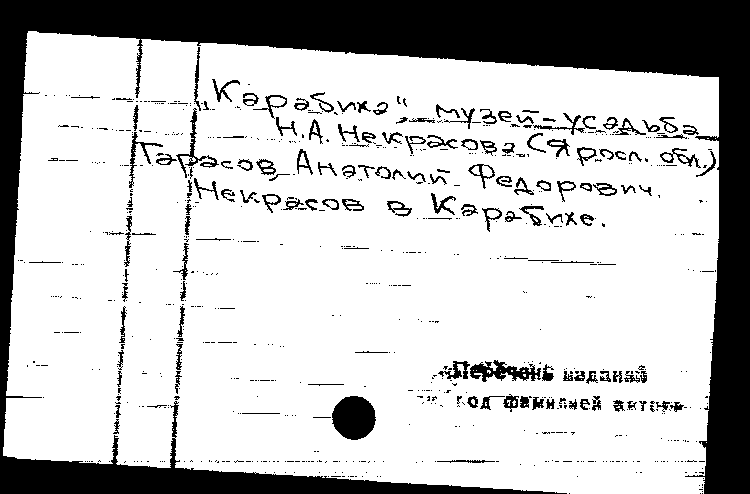 „Карабиха", музей-усадьба
Н.А. Некрасова (Яросл. обл.)
Тарасов, Анатолий Федорович.
Некрасов в Карабихе.
Перечень изданий
под фамилией автора